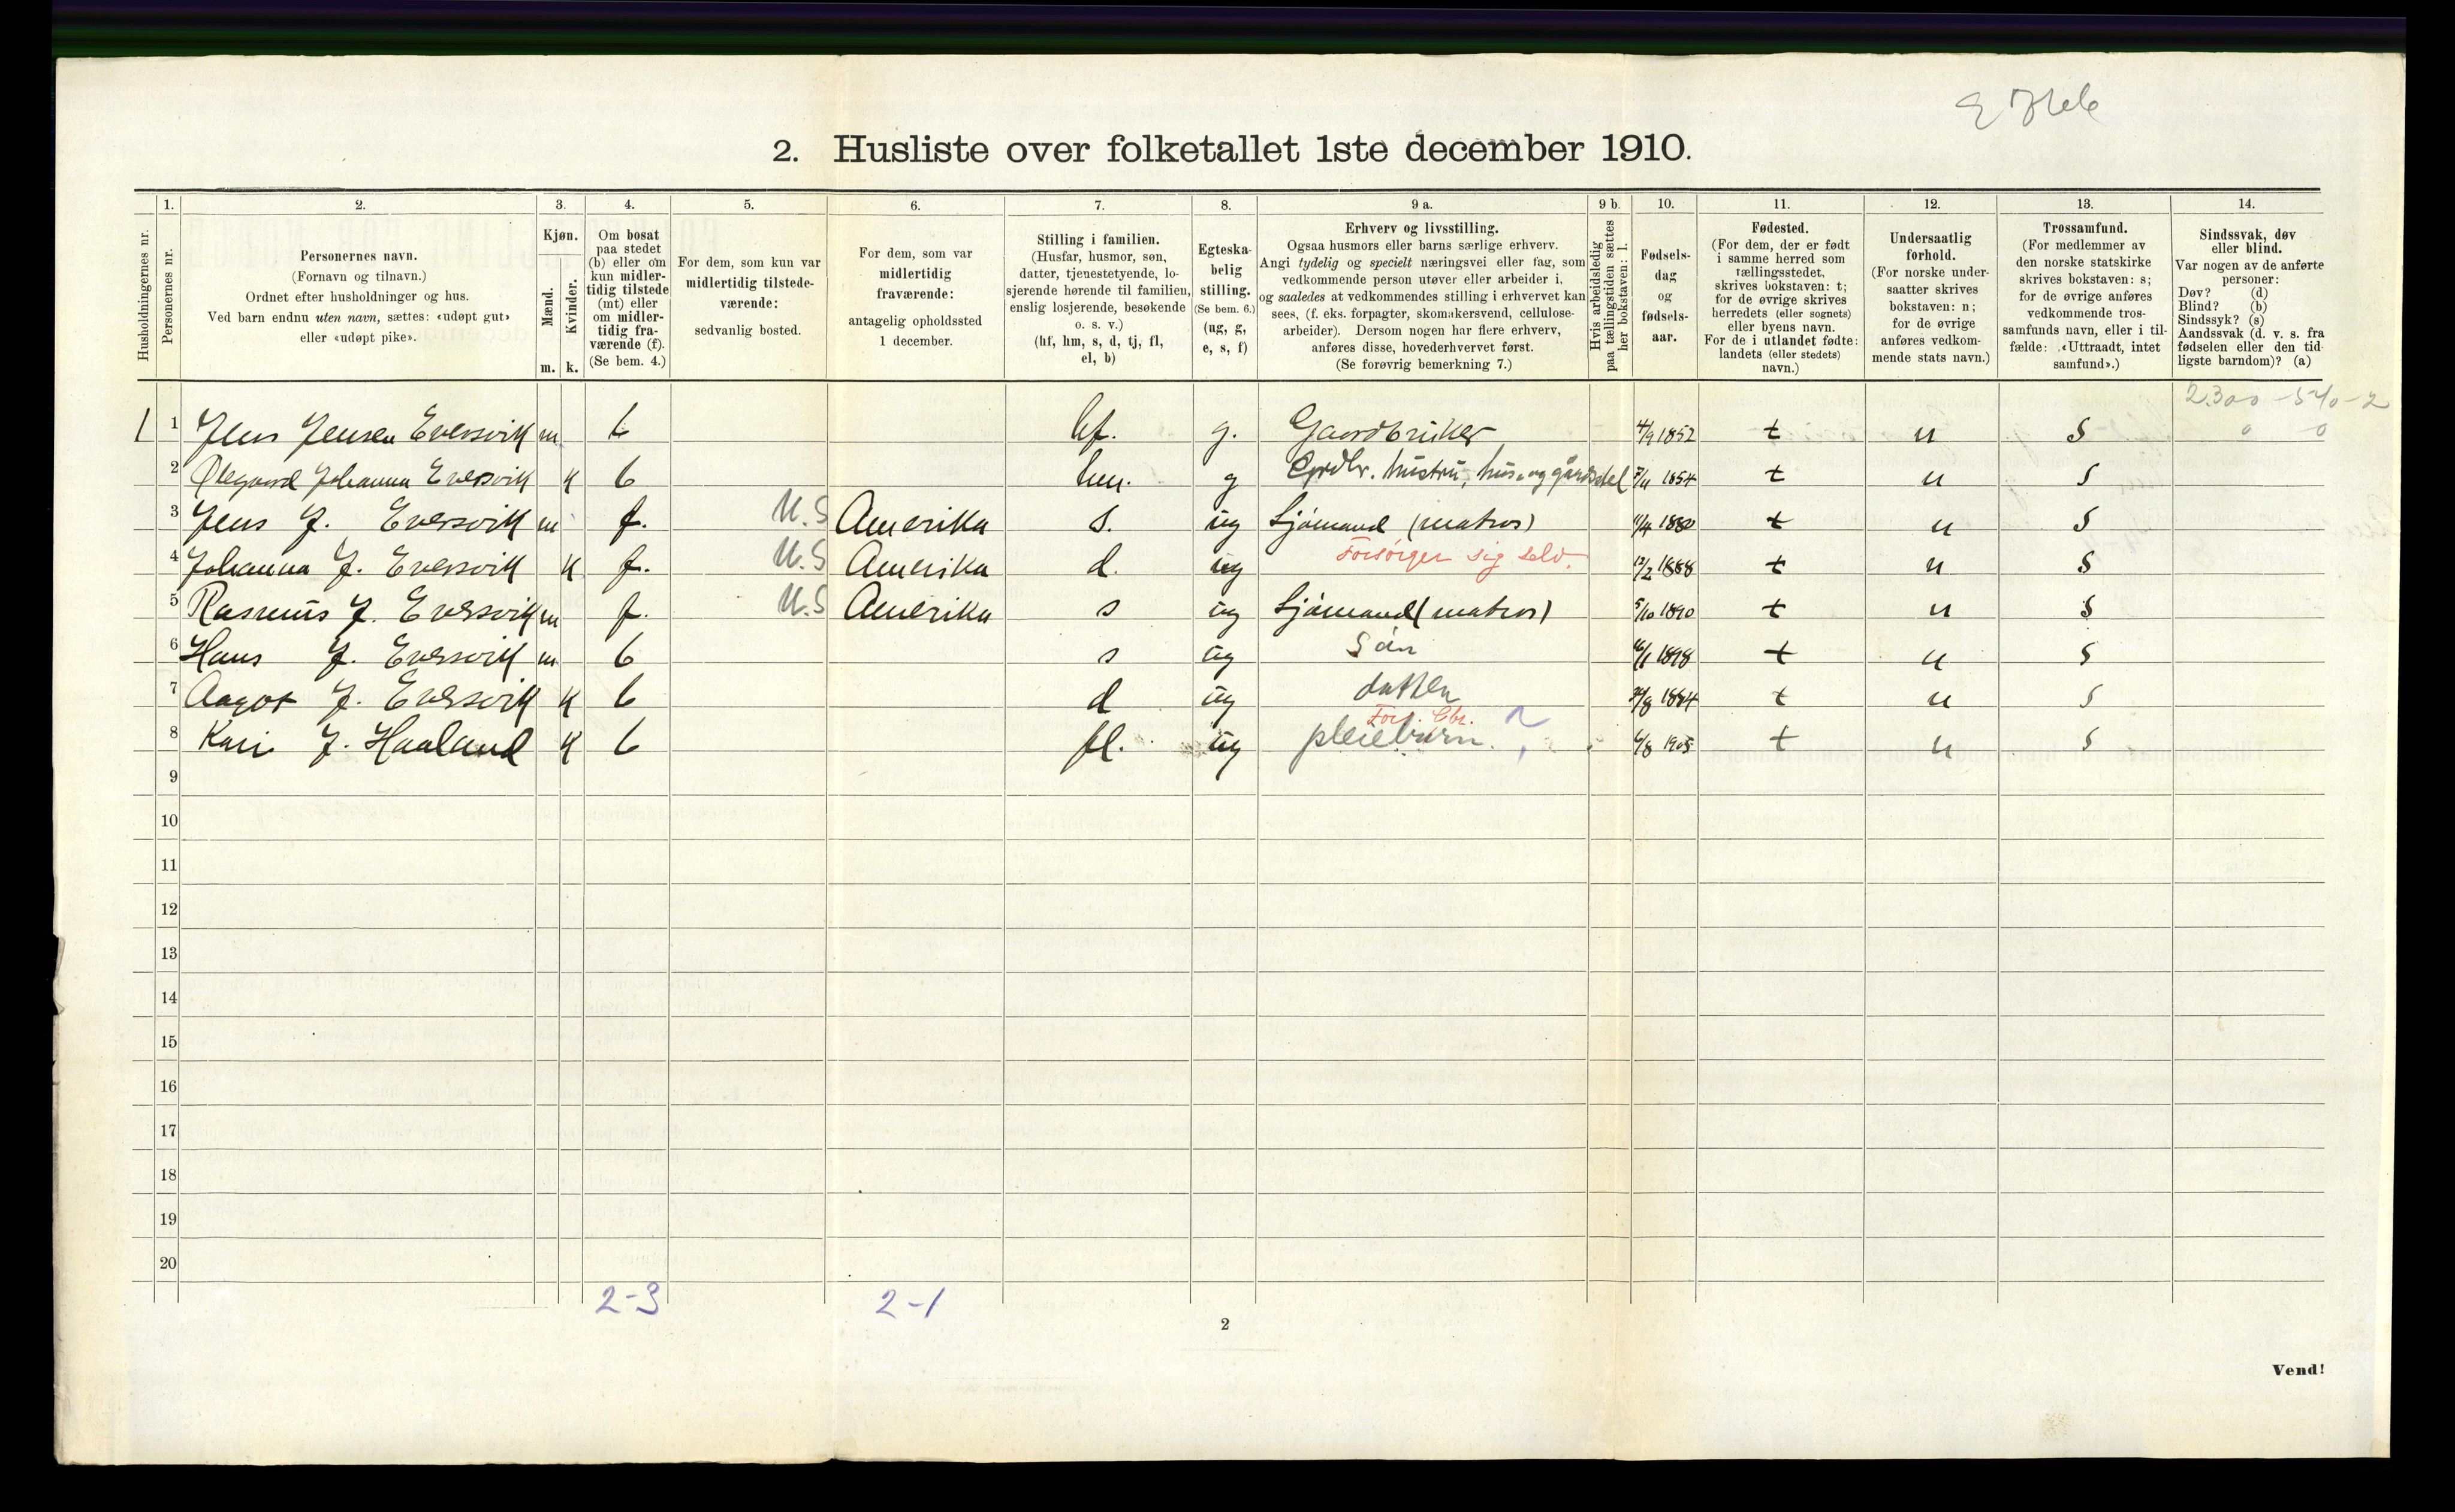 2. Husliste over folketallet 1ste december 1910.
Husholdningernes nr.
1.
Personernes nr.
2.
Personernes navn.
(Fornavn og tilnavn.)
Ordnet efter husholdninger og hus.
Ved barn endnu uten navn, sættes: «udøpt gut»
eller «udøpt pike».
3.
Kjøn.
Mænd.
Kvinder.
m. k.
4.
Om bosat
paa stedet
(b) eller om
kun midler-
tidig tilstede
(mt) eller
om midler-
tidig fra-
værende (f).
(Se bem. 4.)
5.
For dem, som kun var
midlertidig tilstede-
værende:
sedvanlig bosted.
6.
For dem, som var
midlertidig
fraværende:
antagelig opholdssted
1 december.
7.
Stilling i familien.
(Husfar, husmor, søn,
datter, tjenestetyende, lo-
sjerende hørende til familien,
enslig losjerende, besøkende
o. s. v.)
(hf, hm, s, d, tj, fl,
el, b)
8.
Egteska-
belig
stilling.
(Se bem. 6.)
(ug, g,
e, s, f)
9 a.
Erhverv og livsstilling.
Ogsaa husmors eller barns særlige erhverv.
Angi tydelig og specielt næringsvei eller fag, som
vedkommende person utøver eller arbeider i,
og saaledes at vedkommendes stilling i erhvervet kan
sees, (f. eks. forpagter, skomakersvend, cellulose-
arbeider). Dersom nogen har flere erhverv,
anføres disse, hovederhvervet først.
(Se forøvrig bemerkning 7.)
9 b.
Hvis arbeidsledig
paa tællingstiden sættes
her bokstaven: l.
10.
Fødsels-
dag
og
fødsels-
aar.
11.
Fødested.
(For dem, der er født
i samme herred som
tællingsstedet,
skrives bokstaven: t;
for de øvrige skrives
herredets (eller sognets)
eller byens navn.
For de i utlandet fødte:
landets (eller stedets)
navn.)
12.
Undersaatlig
forhold.
(For norske under-
saatter skrives
bokstaven: n;
for de øvrige
anføres vedkom-
mende stats navn.)
13.
Trossamfund.
(For medlemmer av
den norske statskirke
skrives bokstaven: s;
for de øvrige anføres
vedkommende tros-
samfunds navn, eller i til-
fælde: «Uttraadt, intet
samfund».)
14.
Sindssvak, døv
eller blind.
Var nogen av de anførte
personer:
Døv? (d)
Blind? (b)
Sindssyk? (s)
Aandssvak (d. v. s. fra
fødselen eller den tid-
ligste barndom)? (a)
2300 - 540 - 2
0 0
1 1 Jens Jensen Eversvik m b hf. g. Gaardbruker 4/9 1852 t n s
2 Johanna Eversvik k b hm. g Grdbr. hustru, hus- og gårdsstel 1854 t n s
3 Jens J. Eversvik m f. U.S Amerika s. ug Sjømand (matros) 1880 t n s
4 Johanna J. Eversvik k f. U.S Amerika d. ug Forsørger sig selv. 12/2 1888 t n s
5 Rasmus J. Eversvik m f. U.S Amerika s ug Sjømand (matros) 5/10 1890 t n s
6 Hans J. Eversvik m b s ug Søn 1898 t n s
7 Aagot J. Eversvik k b d ug datter 1884 t n s
8 Kari J. Haaland k b fl. ug pleiebarn. 6/8 1905 t n s
9
10
11
12
13
14
15
16
17
18
19
20
2-3 2-1
2
Vend!